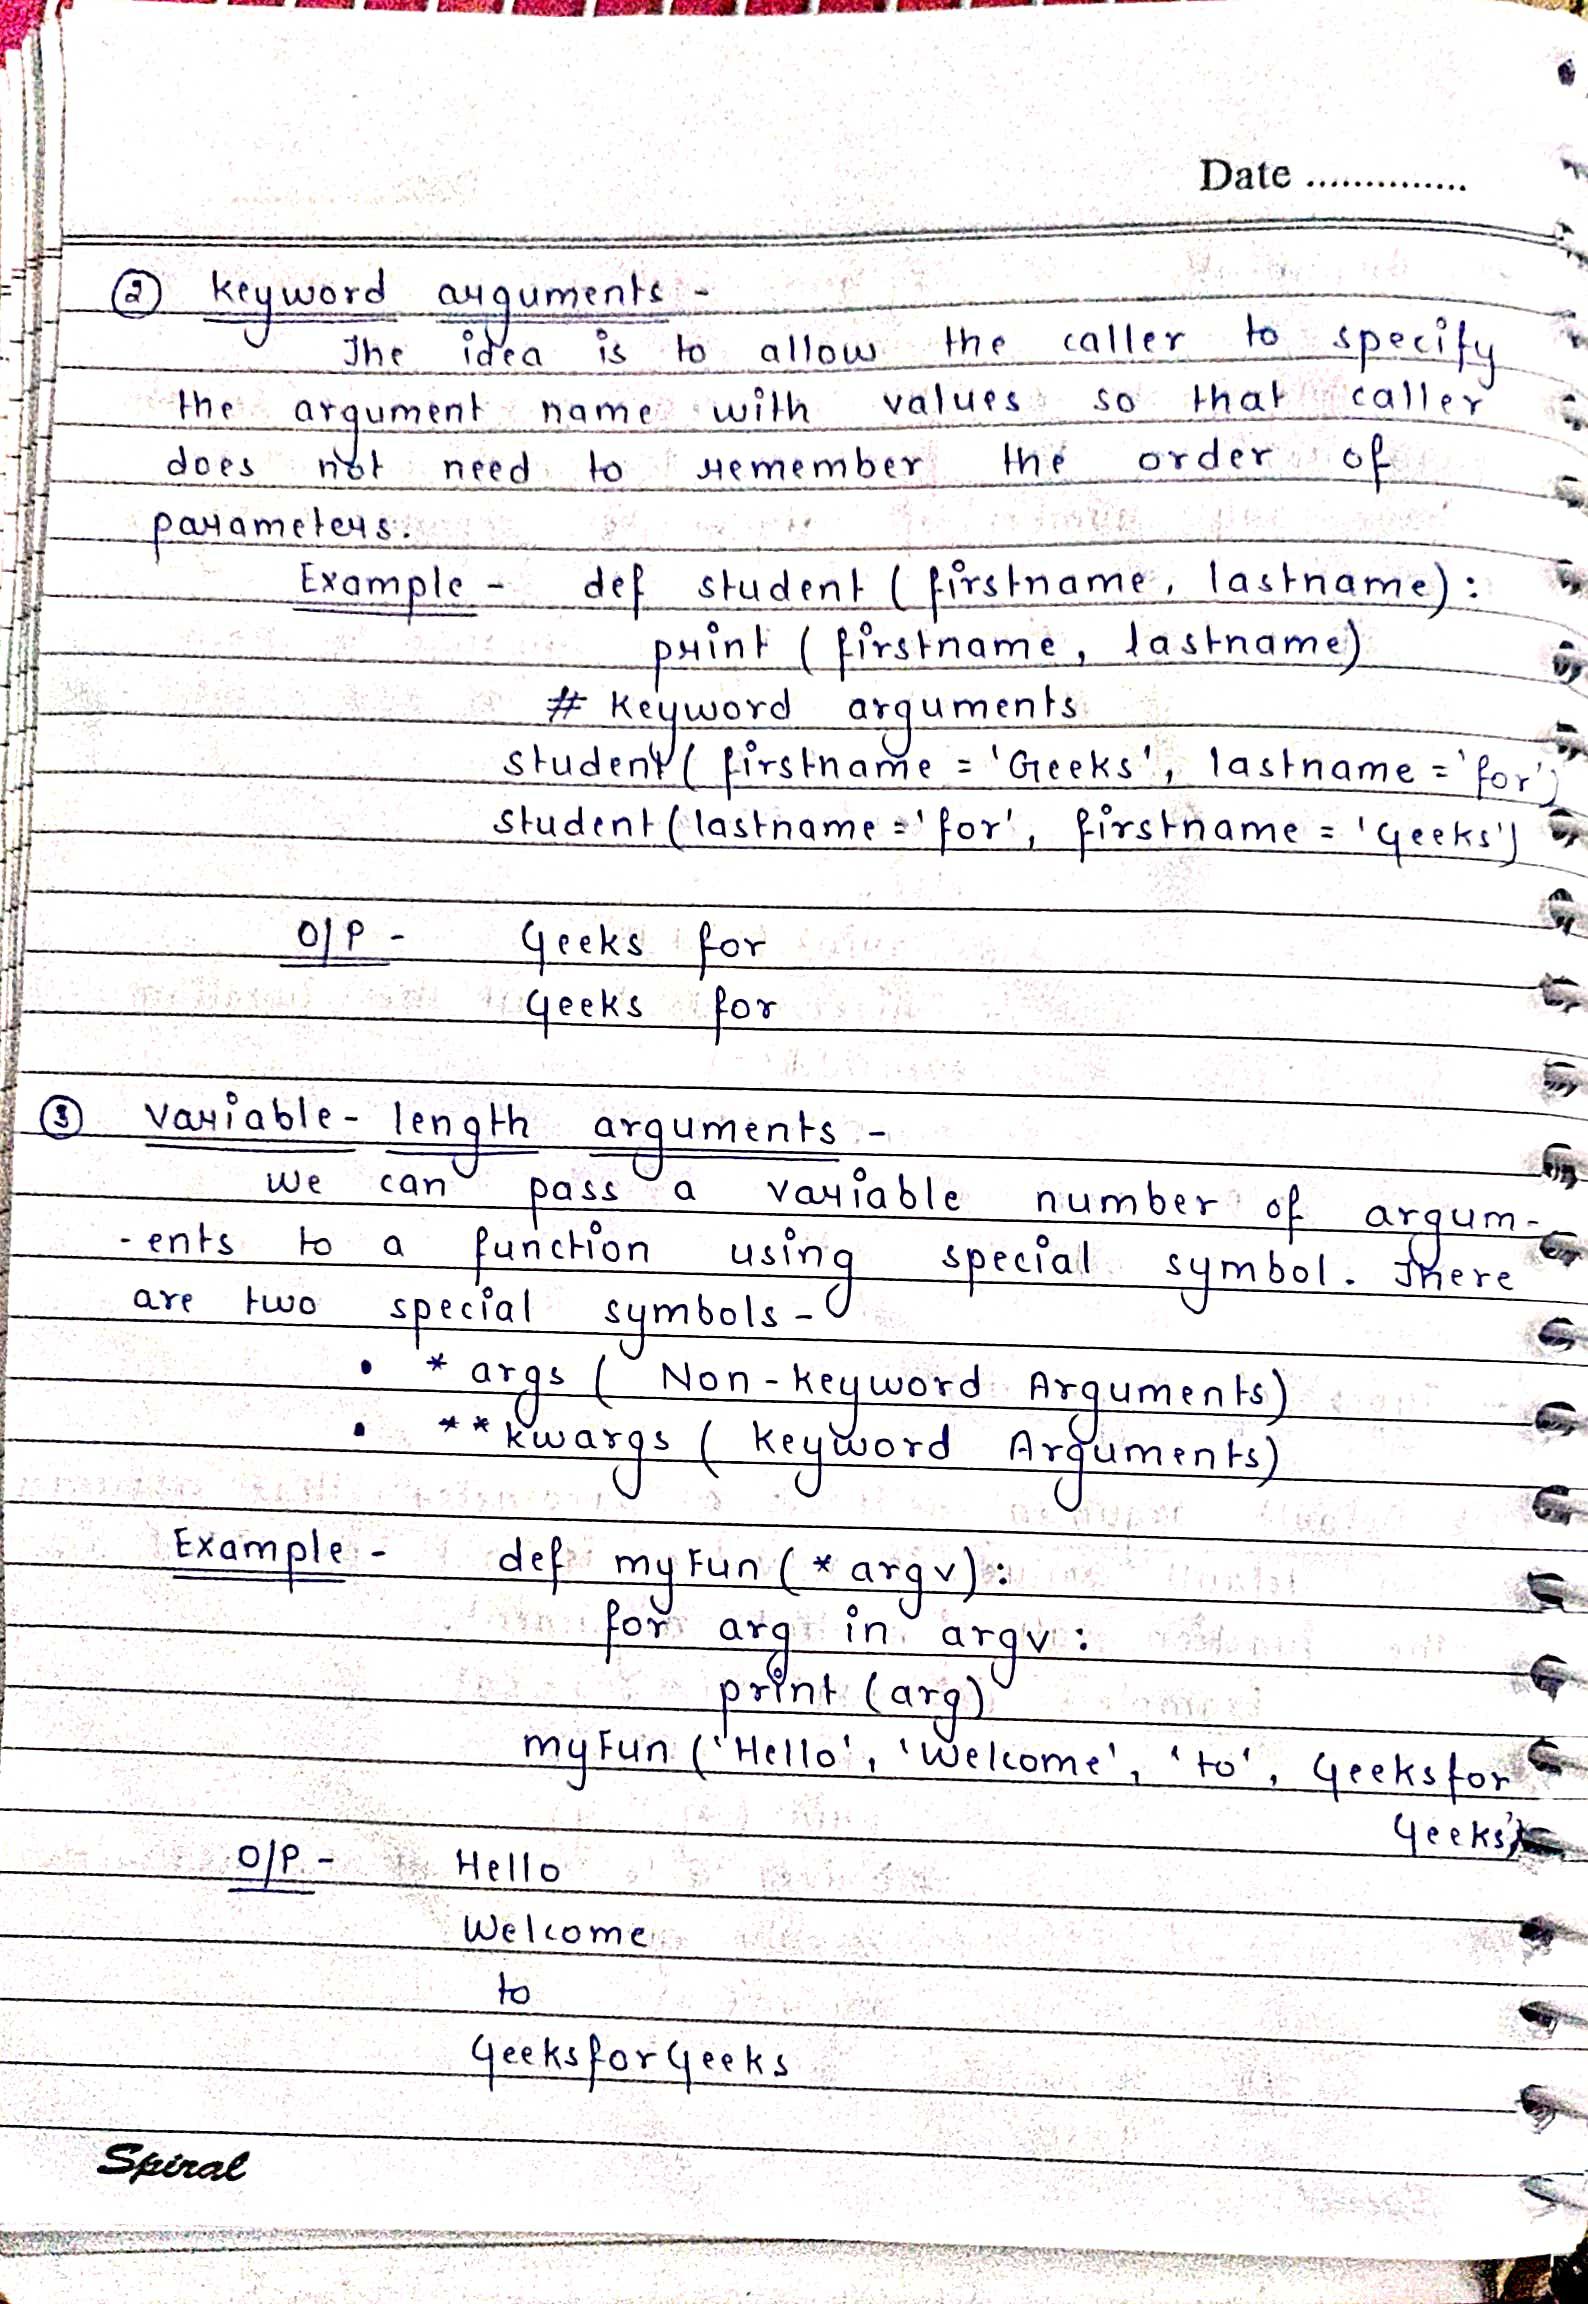 Date ..............
② keyword arguments -
The idea is to allow the caller to specify
the argument name with values so that caller
does not need to remember the order of
parameters.
Example - def student ( firstname, lastname) :
print ( firstname, lastname)
# keyword arguments
student ( firstname = 'Geeks', lastname = 'for')
student ( lastname = 'for', firstname = 'Geeks')
O/P - Geeks for
Geeks for
③ variable - length arguments -
We can pass a variable number of argum-
- ents to a function using special symbol. There
are two special symbols -
• * args ( Non - keyword Arguments)
• ** kwargs ( keyword Arguments)
Example - def myFun ( * argv) :
for arg in argv :
print (arg)
myFun ( 'Hello', 'Welcome', 'to', Geeksfor
Geeks')
O/P - Hello
Welcome
to
GeeksforGeeks
Spiral